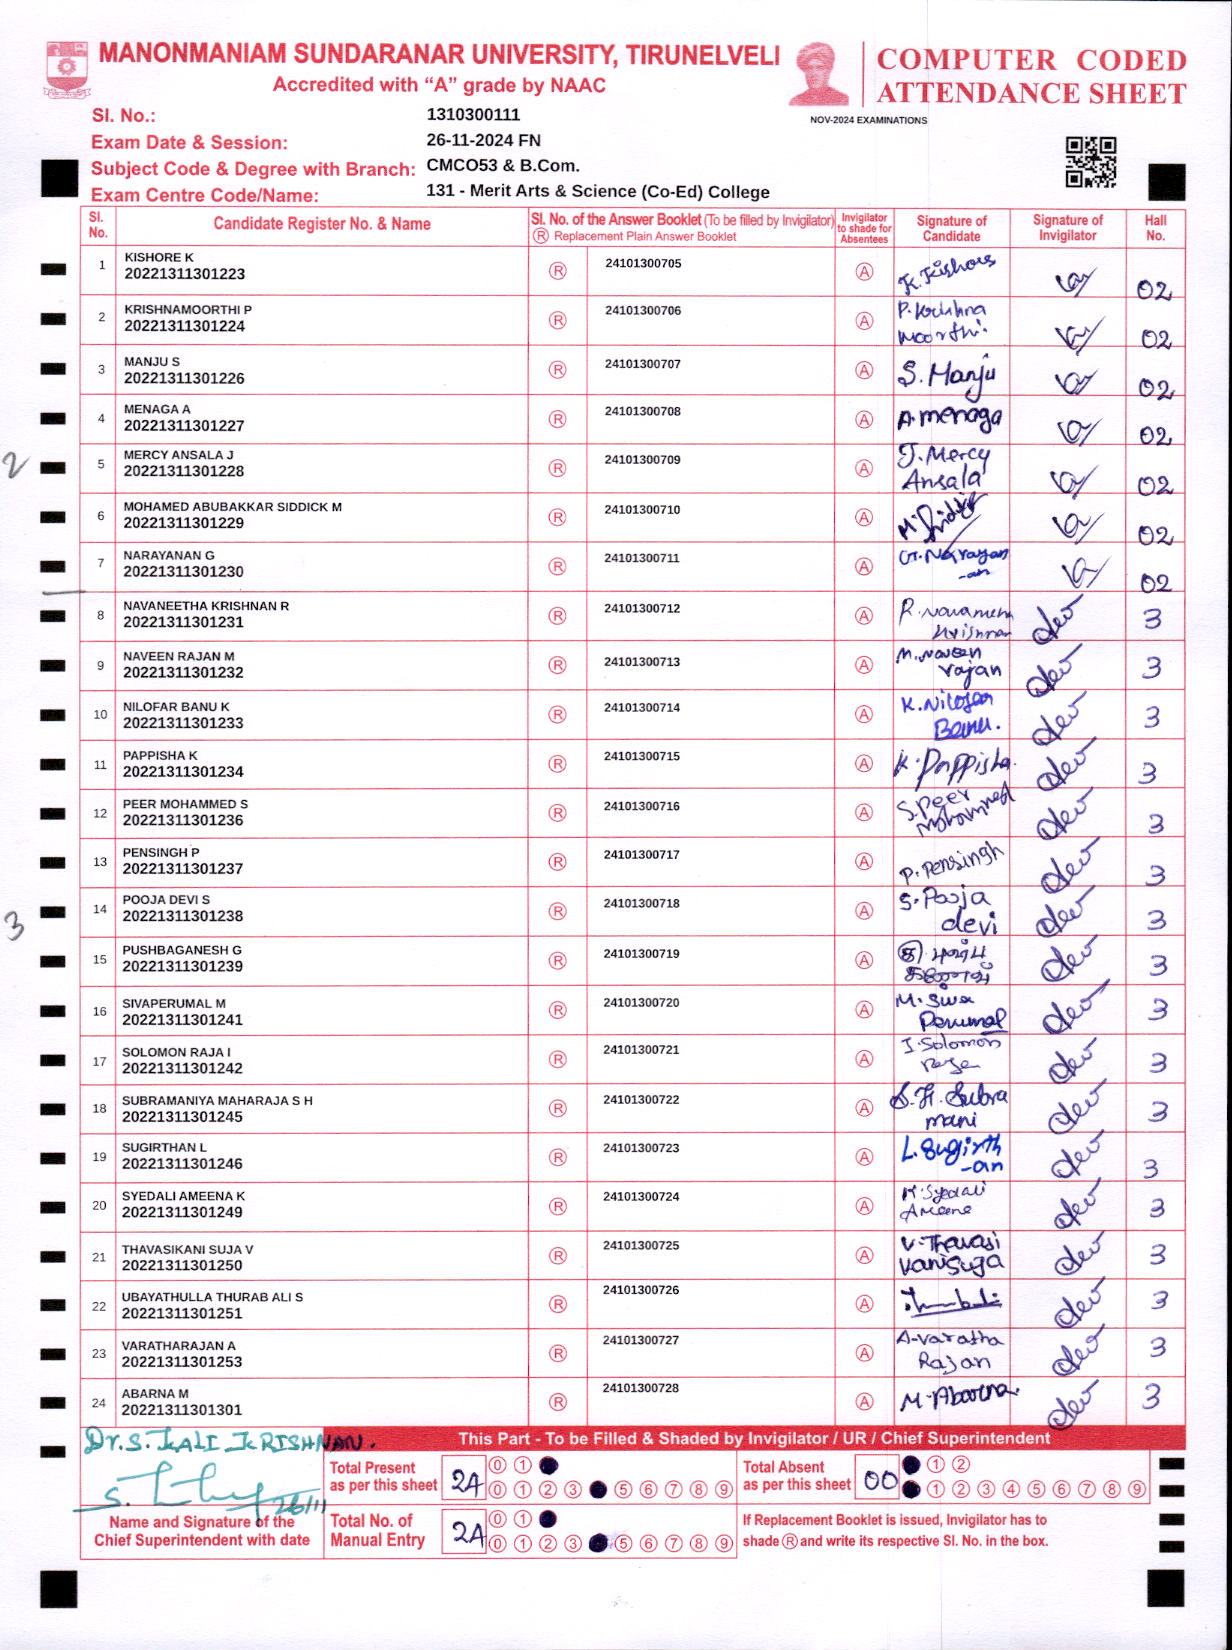 MANONMANIAM SUNDARANAR UNIVERSITY, TIRUNELVELI
Accredited with “A” grade by NAAC
COMPUTER CODED
ATTENDANCE SHEET
NOV-2024 EXAMINATIONS
Sl. No.: 1310300111
Exam Date & Session: 26-11-2024 FN
Subject Code & Degree with Branch: CMCO53 & B.Com.
Exam Centre Code/Name: 131 - Merit Arts & Science (Co-Ed) College
Sl. No. Candidate Register No. & Name Sl. No. of the Answer Booklet (To be filled by Invigilator) Ⓡ Replacement Plain Answer Booklet Invigilator to shade for Absentees Signature of Candidate Signature of Invigilator Hall No.
1 KISHORE K 20221311301223 Ⓡ 24101300705 Ⓐ K. Kishore 02
2 KRISHNAMOORTHI P 20221311301224 Ⓡ 24101300706 Ⓐ P. Krishna moorthi. 02
3 MANJU S 20221311301226 Ⓡ 24101300707 Ⓐ S. Manju 02
4 MENAGA A 20221311301227 Ⓡ 24101300708 Ⓐ A. menaga 02
2
5 MERCY ANSALA J 20221311301228 Ⓡ 24101300709 Ⓐ J. Mercy Ansala 02
6 MOHAMED ABUBAKKAR SIDDICK M 20221311301229 Ⓡ 24101300710 Ⓐ 02
7 NARAYANAN G 20221311301230 Ⓡ 24101300711 Ⓐ G. Narayan -an 02
8 NAVANEETHA KRISHNAN R 20221311301231 Ⓡ 24101300712 Ⓐ 3
9 NAVEEN RAJAN M 20221311301232 Ⓡ 24101300713 Ⓐ M. Naveen rajan 3
10 NILOFAR BANU K 20221311301233 Ⓡ 24101300714 Ⓐ K. Nilofar Banu. 3
11 PAPPISHA K 20221311301234 Ⓡ 24101300715 Ⓐ K. Pappisha. 3
12 PEER MOHAMMED S 20221311301236 Ⓡ 24101300716 Ⓐ S. Peer Mohammed 3
13 PENSINGH P 20221311301237 Ⓡ 24101300717 Ⓐ P. Pensingh 3
3
14 POOJA DEVI S 20221311301238 Ⓡ 24101300718 Ⓐ S. Pooja devi 3
15 PUSHBAGANESH G 20221311301239 Ⓡ 24101300719 Ⓐ 3
16 SIVAPERUMAL M 20221311301241 Ⓡ 24101300720 Ⓐ M. Siva Perumal 3
17 SOLOMON RAJA I 20221311301242 Ⓡ 24101300721 Ⓐ I. Solomon Raja 3
18 SUBRAMANIYA MAHARAJA S H 20221311301245 Ⓡ 24101300722 Ⓐ S. H. Subra mani 3
19 SUGIRTHAN L 20221311301246 Ⓡ 24101300723 Ⓐ L. Sugirth -an 3
20 SYEDALI AMEENA K 20221311301249 Ⓡ 24101300724 Ⓐ K. Syedali Ameena 3
21 THAVASIKANI SUJA V 20221311301250 Ⓡ 24101300725 Ⓐ V. Thavasi kanisuga 3
22 UBAYATHULLA THURAB ALI S 20221311301251 Ⓡ 24101300726 Ⓐ 3
23 VARATHARAJAN A 20221311301253 Ⓡ 24101300727 Ⓐ A. Varatha Rajan 3
24 ABARNA M 20221311301301 Ⓡ 24101300728 Ⓐ M. Abarna. 3
Dr. S. KALI KRISHNAN.
26/11
Name and Signature of the Chief Superintendent with date
This Part - To be Filled & Shaded by Invigilator / UR / Chief Superintendent
Total Present as per this sheet 24 0 1 0 1 2 3 5 6 7 8 9
Total Absent as per this sheet 00 1 2 1 2 3 4 5 6 7 8 9
Total No. of Manual Entry 24 0 1 0 1 2 3 5 6 7 8 9
If Replacement Booklet is issued, Invigilator has to shade Ⓡ and write its respective Sl. No. in the box.